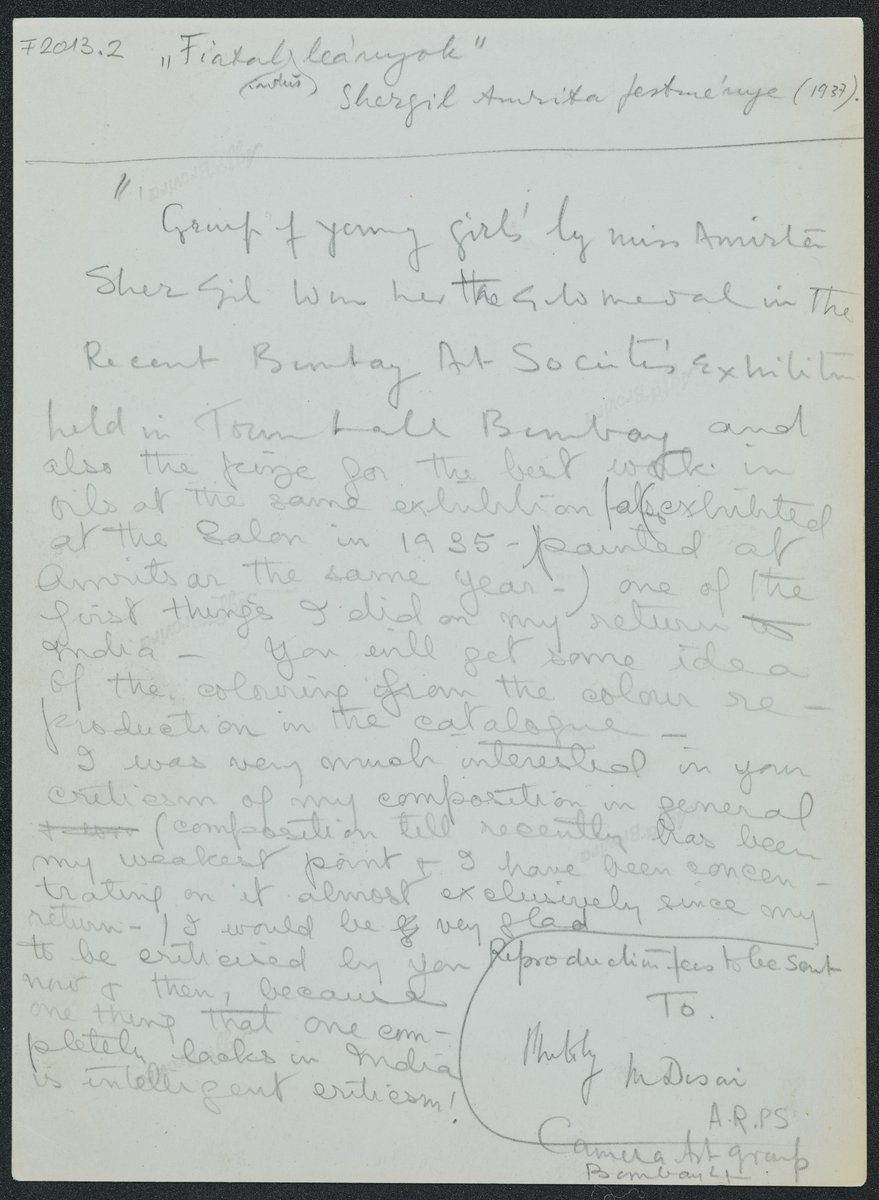 F2013.2 „Fiatal leányok"
(indus)
Shergil Amrita festménye (1937).
"Group of young girls' by miss Amrita
Sher Gil won her the Gold medal in The
Recent Bombay Art Societe's Exhibition
held in Town Hall Bombay and
also the prize for the best work in
oils at the same exhibition (also exhibited
at the Salon in 1935 - painted at
Amritsar the same year -) one of the
first things I did on my return to
India - You will get some idea
of the colouring from the colour re-
production in the catalogue -
I was very much interested in your
criticism of my composition in general
(composition till recently has been
my weakest point & I have been concen-
trating on it almost exclusively since my
return -) I would be very glad
to be criticised by you
now & then, because
one thing that one com-
pletely lacks in India
is intelligent criticism!
Reproduction fees to be sent
To.
M Desai
A.R.PS
Camera Art group
Bombay 4